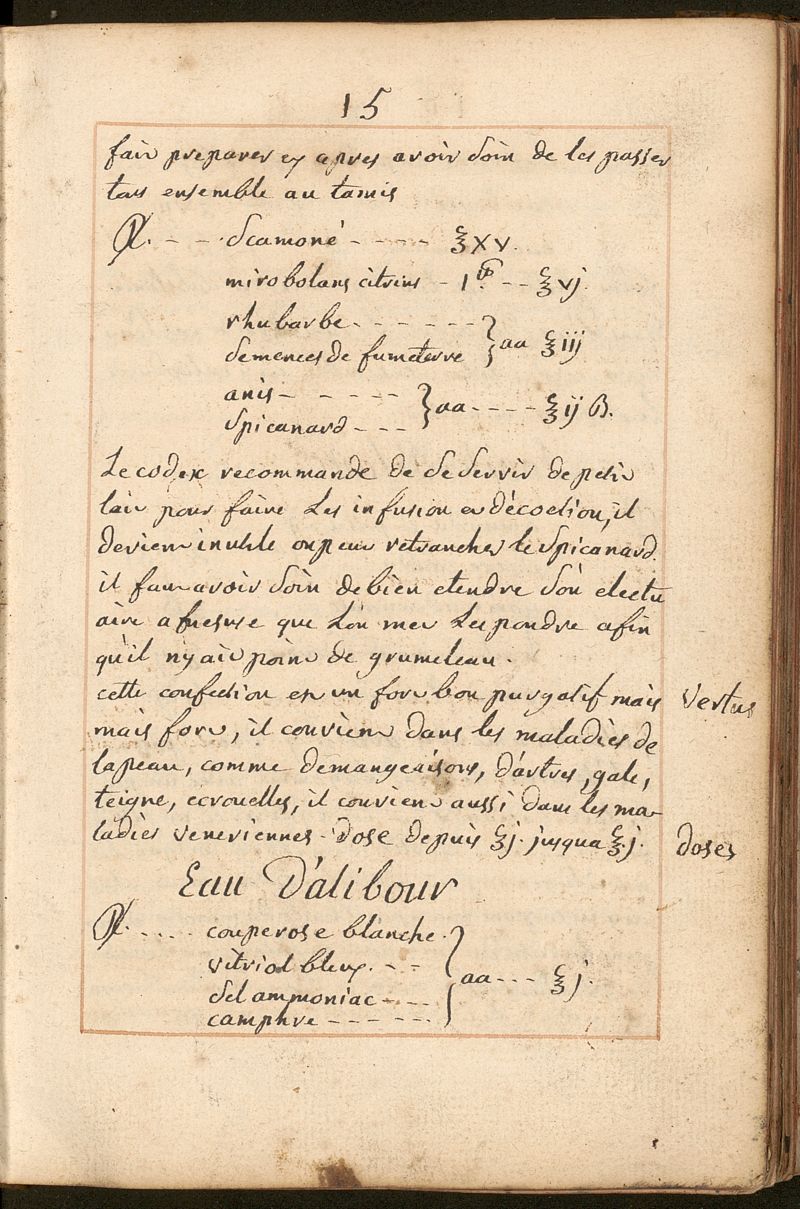 15
fait preparer et apres avoir Soin de les passer
tous ensemble au tamis
℞. - - - Scamoné - - - - ℥xv.
mirobolans citrins - 1 - - ℥vj
rhubarbe - - - - - -
Semences de fumeterre } aa ℥iij
anis - - - - - -
Spicanard - - - } aa - - - - ℥ij ß.
Le codex recommande de Se Servir de petit
lait pour faire Les infusion et décoction, il
devient inutile on peut retrancher le Spicanard
il faut avoir Soin de bien etendre Son electu
aire a mesure que L'on met Les poudre afin
qu'il n'y ait point de grumeleau.
cette confection est un fort bon purgatif mais vertus
mais fort, il convient dans les maladies de
la peau, comme demangeaisons, d'artres, gale,
teigne, ecrouelles, il convient aussi dans les ma-
ladies veneriennes. Dose depuis ʒj. jusqua ℥j. doses
Eau D'alibour
℞. - - - - couperose blanche.
vitriol bleux. - -
Sel ammoniac - - - } aa - - - ℥j.
camphre - - - - - -